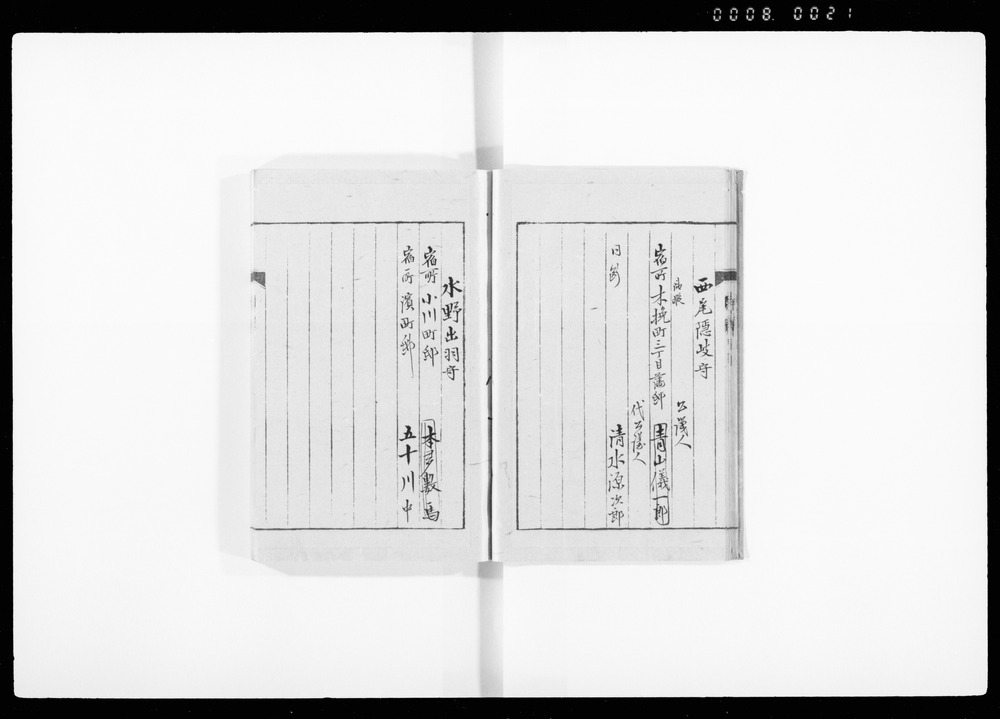 0008. 0021
西尾隠岐守
公議人
宿所木挽町三丁目藩邸 青山儀一郎
代公議人
同断 清水源次郎
水野出羽守
宿所小川町邸 本多数馬
宿所濱町邸 五十川中